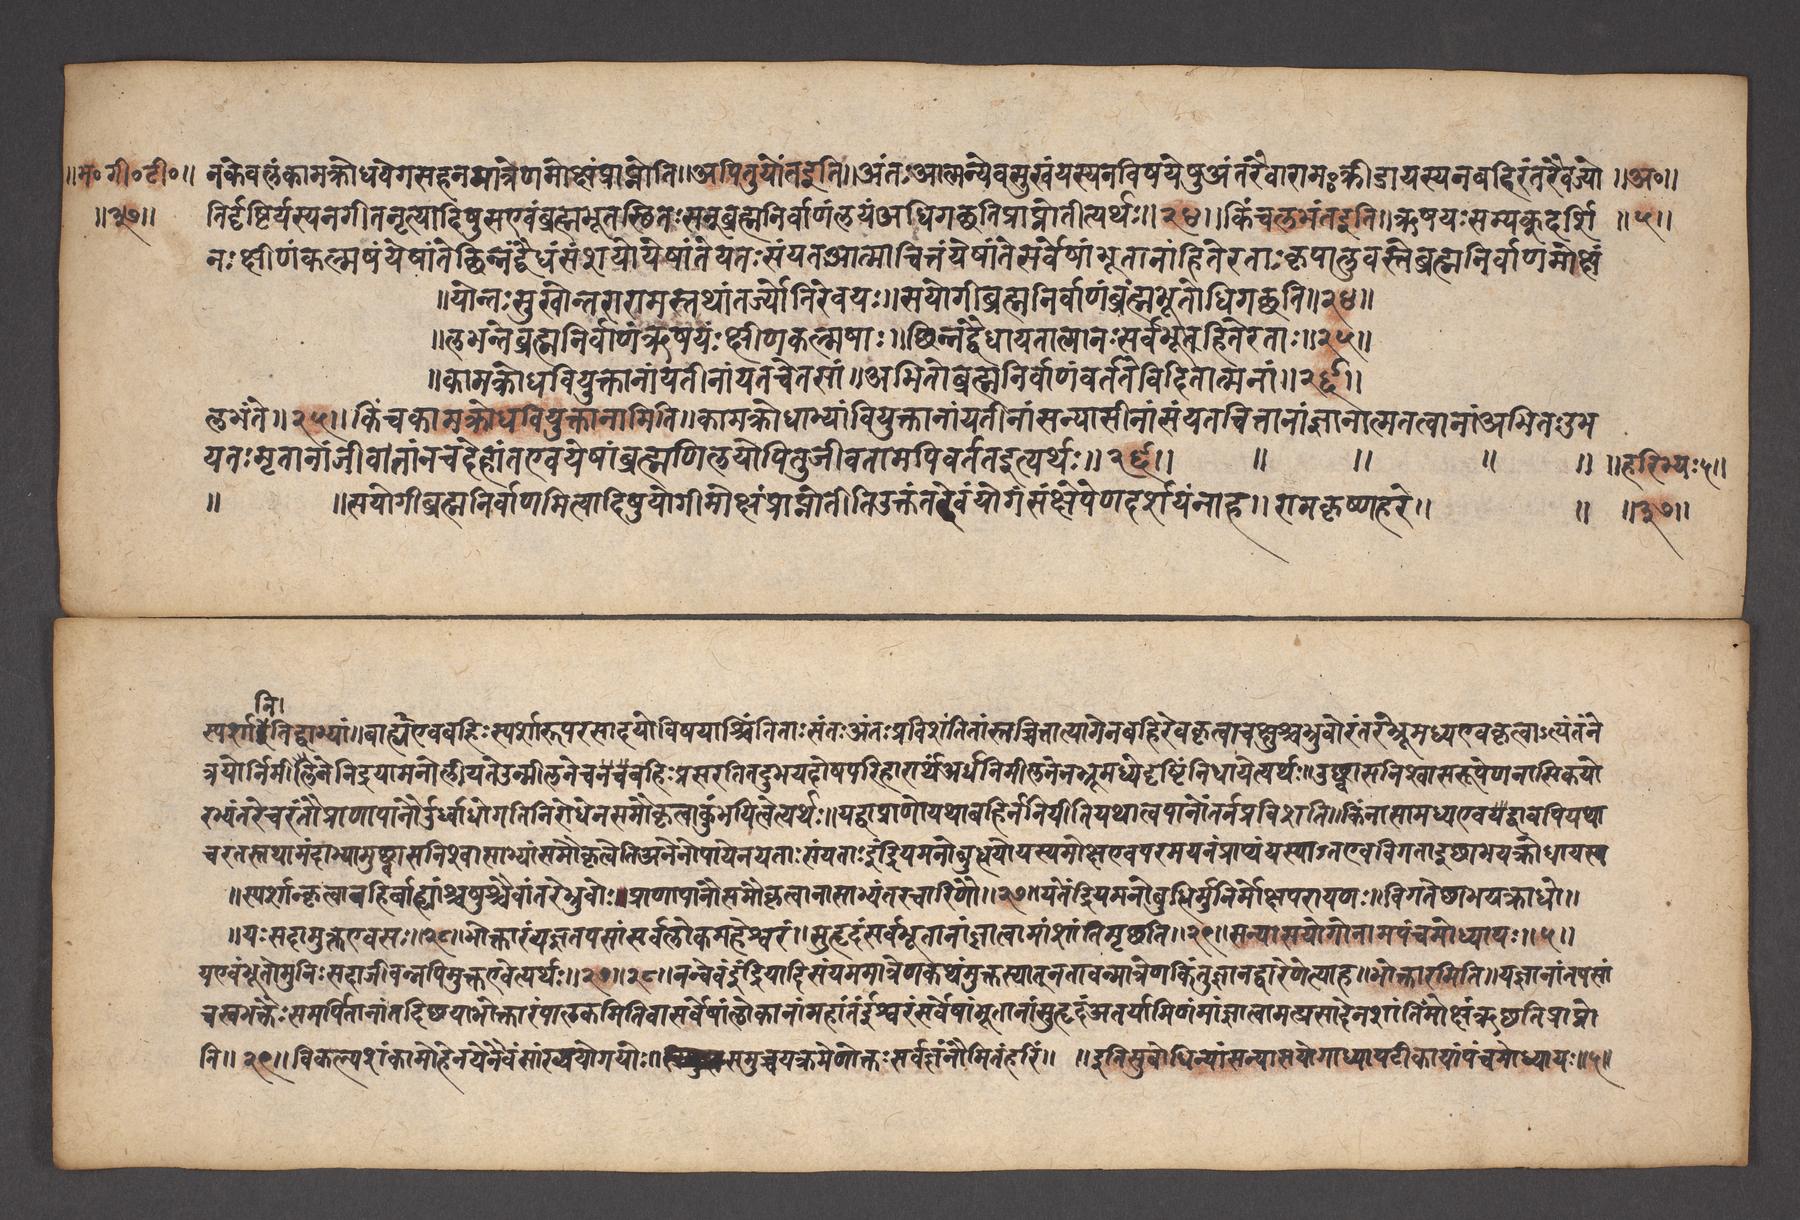 ॥भ॰गी॰टी॰॥ नकेवलंकामक्रोधवेगसहनमात्रेणमोक्षंप्राप्नोति॥अपितुयोंतइति॥अंतःआत्मन्येवसुखंयस्यनविषयेषुअंतरेवारामःक्रीडायस्यनबहिरंतरेवज्यो ॥अ॰॥
॥३७॥ तिर्दृष्टिर्यस्यनगीतनृत्यादिषुसएवंब्रह्मभूतस्थितःसन्ब्रह्मनिर्वाणंलयंअधिगछतिप्राप्नोतीत्यर्थः॥२४॥किंचलभंतइति॥ऋषयःसम्यक्दर्शि ॥५॥
नःक्षीणंकल्मषंयेषांतेछिन्नंद्वैधंसंशयोयेषांतेयतःसंयतआत्माचित्तंयेषांतेसर्वेषांभूतानांहितेरताःकृपालुवस्तेब्रह्मनिर्वाणमोक्षं
॥योन्तःसुखोन्तरारामस्तथांतर्ज्योतिरेवयः॥सयोगीब्रह्मनिर्वाणंब्रह्मभूतोधिगछति॥२४॥
॥लभन्तेब्रह्मनिर्वाणंऋषयःक्षीणकल्मषाः॥छिन्नद्वैधायतात्मानःसर्वभूतहितेरताः॥२५॥
॥कामक्रोधवियुक्तानांयतीनांयतचेतसां॥अभितोब्रह्मनिर्वाणंवर्ततेविदितात्मनां॥२६॥
लभंते॥२५॥किंचकामक्रोधवियुक्तानामिति॥कामक्रोधाभ्यांवियुक्तानांयतीनांसन्यासीनांसंयतचित्तानांज्ञानात्मतत्वानांअभितःउभ
यतःमृतानांजीवातांनचदेहांतएवयेषांब्रह्मणिलयोपितुजीवतामपिवर्ततइत्यर्थः॥२६॥ ॥ ॥ ॥ ॥ ॥हरिभ्यः५॥
॥ ॥सयोगीब्रह्मनिर्वाणमित्यादिषुयोगीमोक्षंप्राप्नोतीतिउक्तंतदेवंयोगंसंक्षेपेणदर्शयंनाह॥रामकृष्णहरे॥ ॥ ॥३७॥
नि।
स्पर्शानितिद्वाभ्यां॥बाह्याएवबहिःस्पर्शारूपरसादयोविषयाश्चिंतिताःसंतःअंतःप्रविशंतितांस्तच्चिंतात्यागेनबहिरेवकृत्वाचक्षुश्चभ्रुवोरंतरेभ्रूमध्यएवकृत्वाऽत्यंतंने
त्रयोर्निमीलनेनिद्रयामनोलीयतेउन्मीलनेचबहिःप्रसरतितदुभयदोषपरिहारार्थंअर्धनिमीलनेनभ्रूमध्येदृष्टिंनिधायेत्यर्थः॥उछ्वासनिश्वासरूपेणनासिकयो
रभ्यंतरेचरंतौप्राणापानौउर्ध्वाधोगतिनिरोधेनसमौकृत्वाकुंभयित्वेत्यर्थः॥यद्वाप्राणोयथाबहिर्ननिर्यातियथात्वपानोंतर्नप्रविशति॥किंनासामध्यएवयद्वावपियथा
चरतस्तथामंदाभ्यामुछ्वासनिश्वासाभ्यांसमौकृत्वेतिअनेनोपायेनयताःसंयताःइंद्रियमनोबुद्धयोयस्यमोक्षएवपरमयनंप्राप्यंयस्यातएवविगताइछाभयक्रोधायस्य
॥स्पर्शान्कृत्वाबहिर्बाह्यांश्चक्षुश्चैवांतरेभ्रुवोः॥प्राणापानौसमौकृत्वानासाभ्यंतरचारिणौ॥२७॥यतेंद्रियमनोबुद्धिर्मुनिर्मोक्षपरायणः॥विगतेछाभयक्रोधो॥
॥यःसदामुक्तएवसः॥२८॥भोक्तारंयज्ञतपसांसर्वलोकमहेश्वरं॥सुहृदंसर्वभूतानांज्ञात्वामांशांतिमृछति॥२९॥सन्यासयोगोनामपंचमोध्यायः॥५॥
यएवंभूतोमुनिःसदाजीवन्नपिमुक्तएवेत्यर्थः॥२७॥२८॥नन्वेवंइंद्रियादिसंयममात्रेणकथंमुक्तस्यात्नतावन्मात्रेणकिंतुज्ञानद्वारेणेत्याह॥भोक्तारमिति॥यज्ञानांतपसां
चस्वभक्तैःसमर्पितानांतदिछयाभोक्तारंपालकमितिवासर्वेषांलोकानांमहांतंईश्वरंसर्वेषांभूतानांसुहृदंअंतर्यामिणंमांज्ञात्वामत्प्रसादेनशांतिंमोक्षंऋछतिप्राप्नो
ति॥२९॥विकल्पशंकामोहेनयेनैवंसांख्ययोगयोः॥समुच्चयक्रमेणोक्तःसर्वज्ञंनौमितंहरिं॥ ॥इतिसुबोधिन्यांसन्यासयोगाध्यायटीकायांपंचमोध्यायः॥५॥